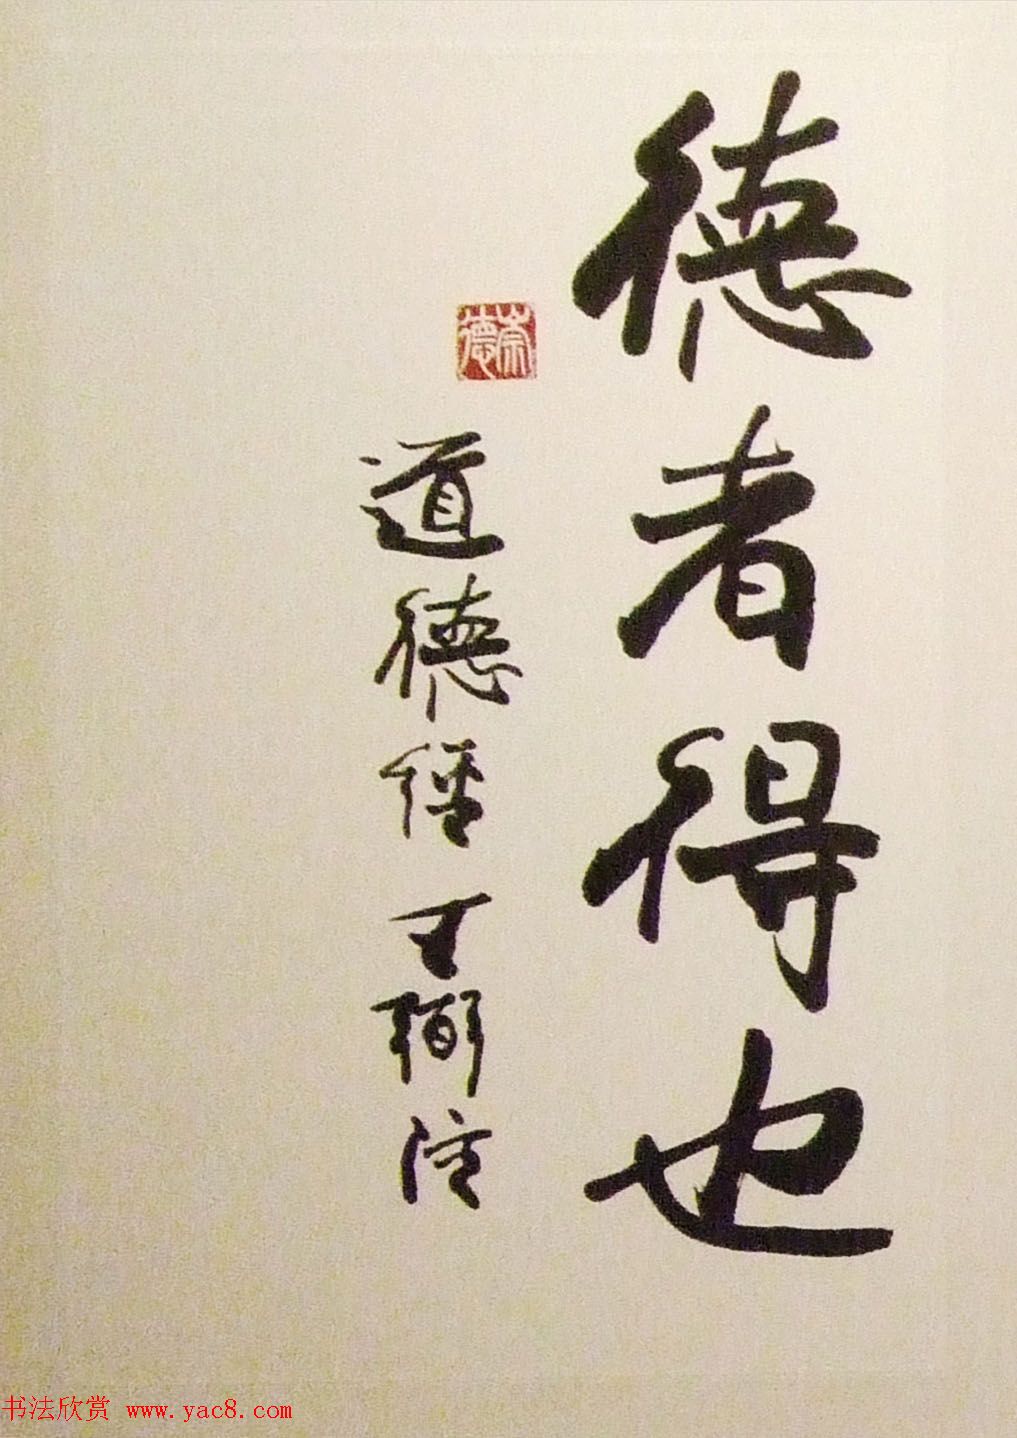 德者得也
崇德
道德经王弼注
书法欣赏 www.yac8.com